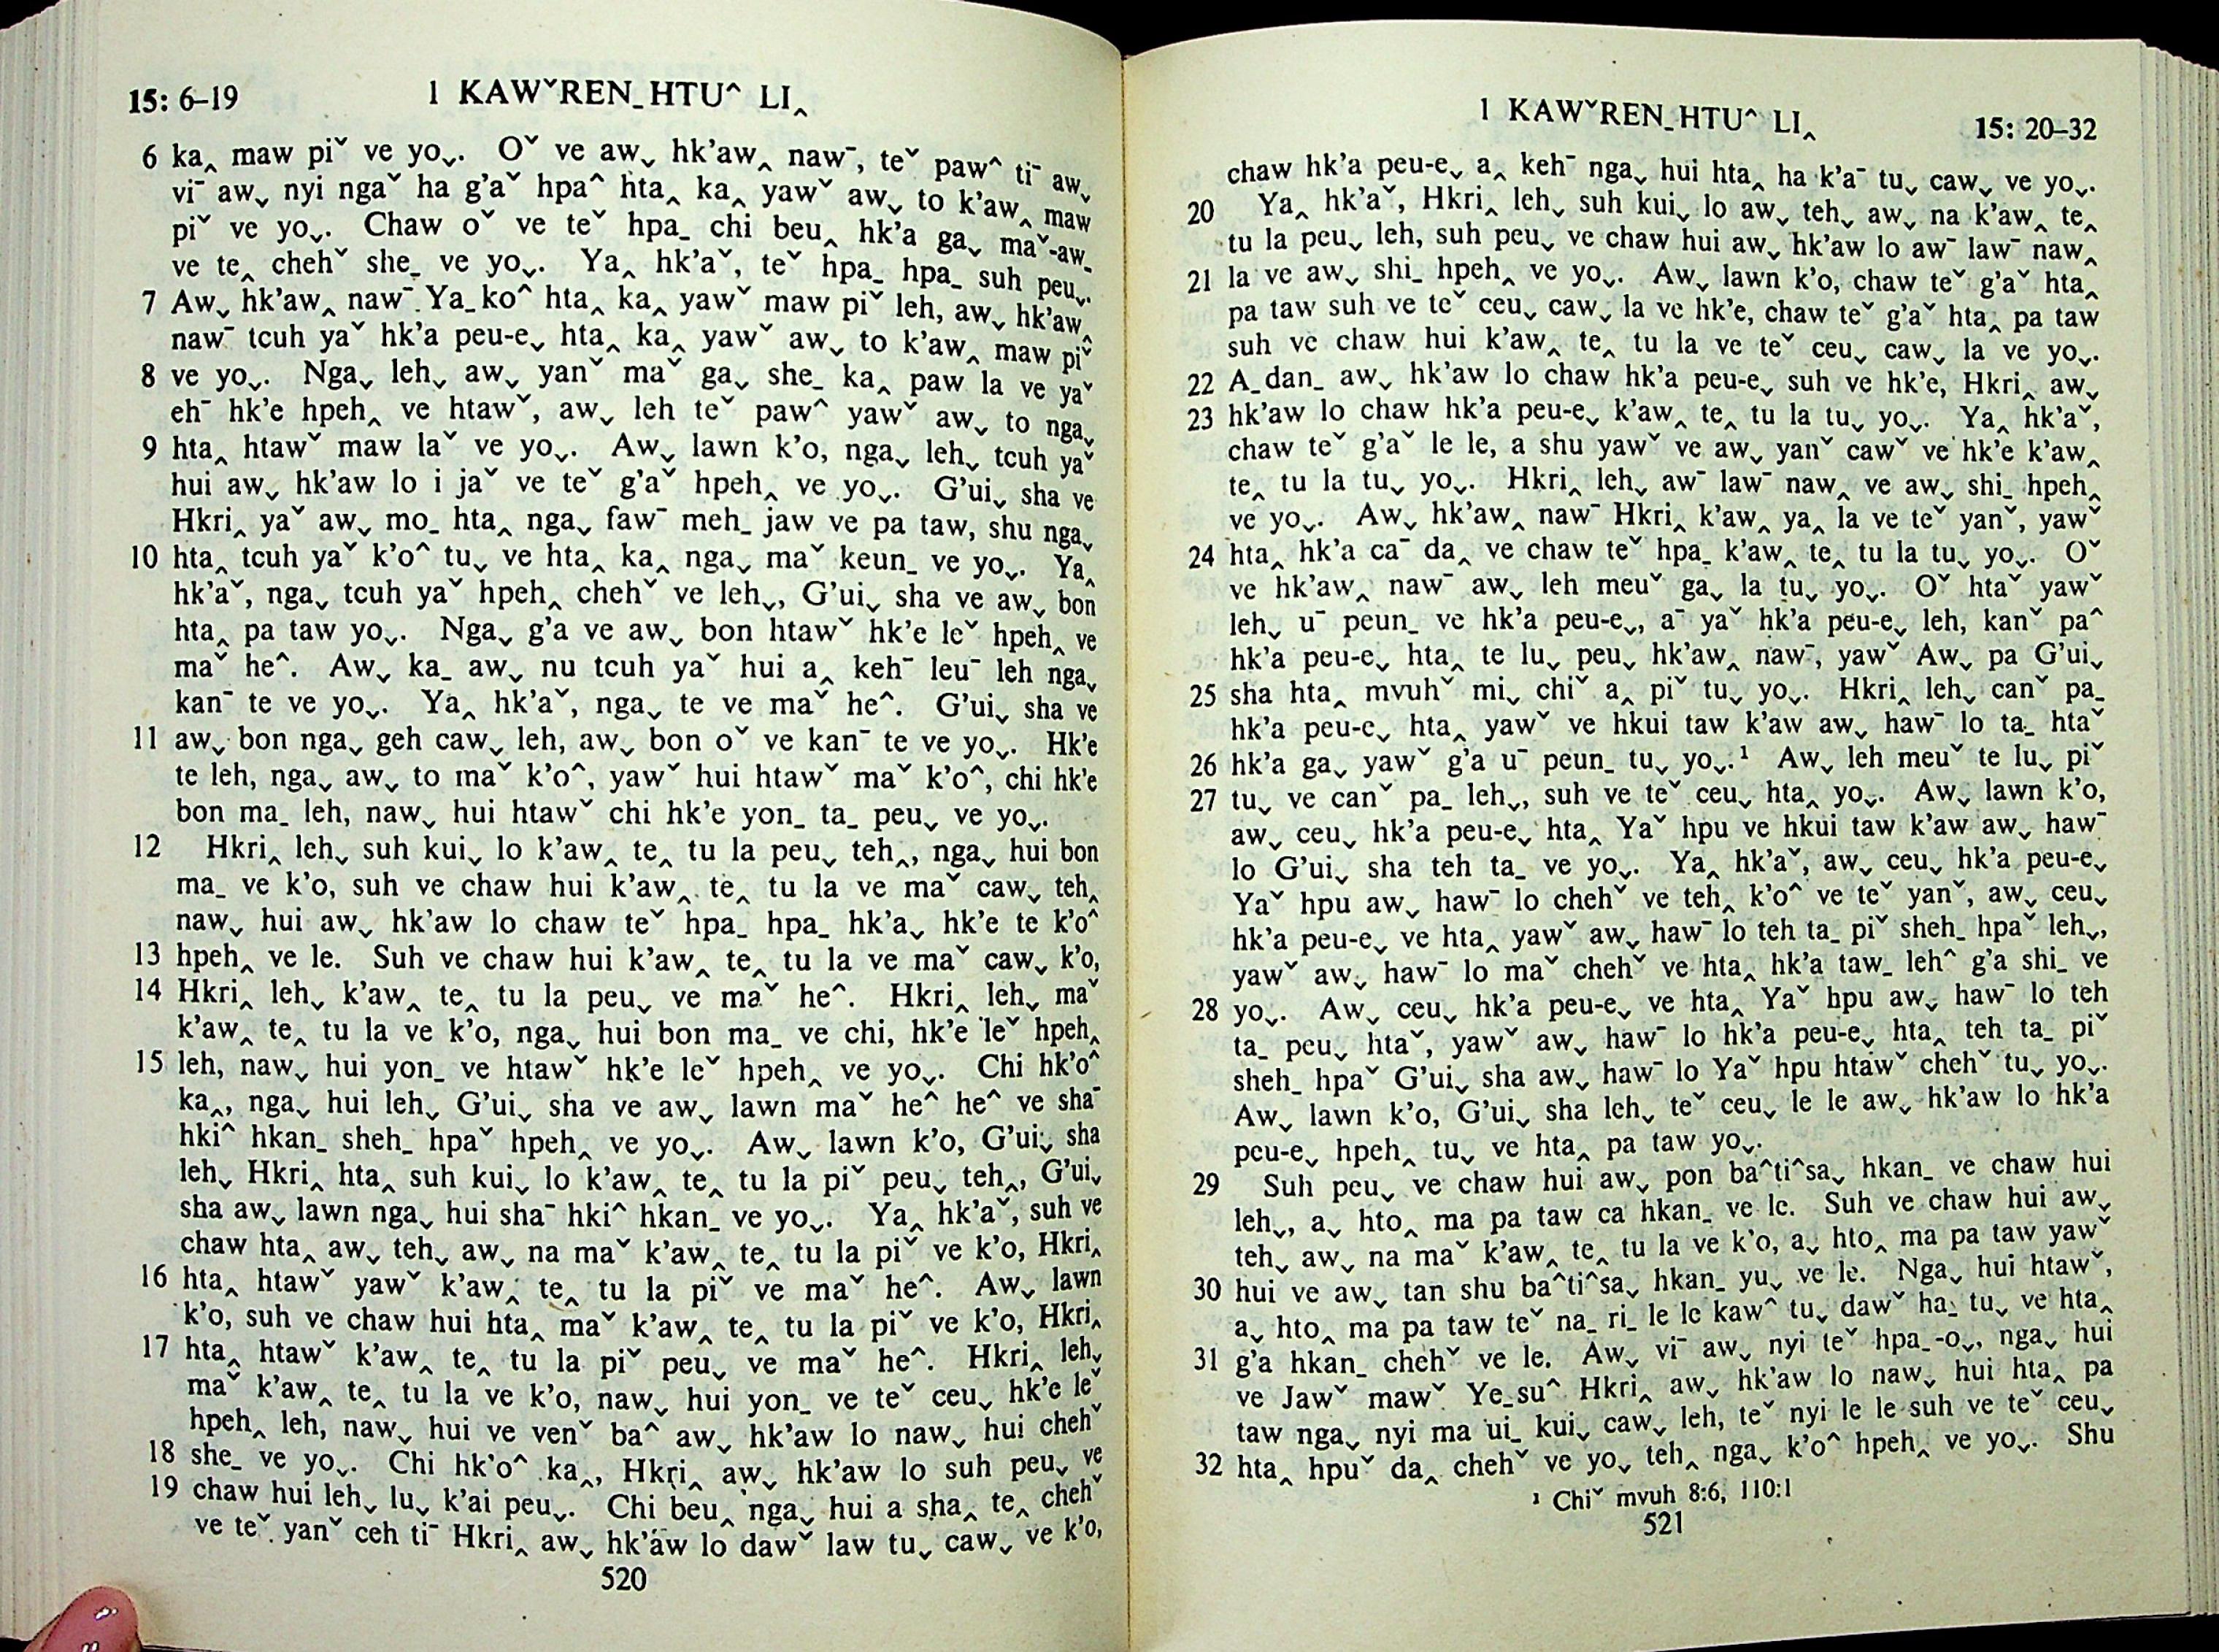 15: 6–19
1 KAWˇREN_HTU^ LI‸
6 ka‸ maw piˇ ve yoˬ. Oˇ ve awˬ hk'aw‸ nawˉ, teˇ paw^ tiˉ awˬ
viˉ awˬ nyi ngaˇ ha g'aˇ hpa^ hta‸ ka‸ yawˇ awˬ to k'aw‸ maw
piˇ ve yoˬ. Chaw oˇ ve teˇ hpa_ chi beu‸ hk'a gaˬ maˇ-aw_
ve te‸ chehˇ she_ ve yoˬ. Ya‸ hk'aˇ, teˇ hpa_ hpa_ suh peuˬ.
7 Awˬ hk'aw‸ nawˉ Ya_ko^ hta‸ ka‸ yawˇ maw piˇ leh, awˬ hk'aw‸
nawˉ tcuh yaˇ hk'a peu-eˬ hta‸ ka‸ yawˇ awˬ to k'aw‸ maw piˇ
8 ve yoˬ. Ngaˬ lehˬ awˬ yanˇ maˇ gaˬ she_ ka‸ paw la ve yaˇ
ehˉ hk'e hpeh‸ ve htawˇ, awˬ leh teˇ paw^ yawˇ awˬ to ngaˬ
9 hta‸ htawˇ maw laˇ ve yoˬ. Awˬ lawn k'o, ngaˬ lehˬ tcuh yaˇ
hui awˬ hk'aw lo i jaˇ ve teˇ g'aˇ hpeh‸ ve yoˬ. G'uiˬ sha ve
Hkri‸ yaˇ awˬ mo_ hta‸ ngaˬ fawˉ meh_ jaw ve pa taw, shu ngaˬ
10 hta‸ tcuh yaˇ k'o^ tuˬ ve hta‸ ka‸ ngaˬ maˇ keun_ ve yoˬ. Ya‸
hk'aˇ, ngaˬ tcuh yaˇ hpeh‸ chehˇ ve lehˬ, G'uiˬ sha ve awˬ bon
hta‸ pa taw yoˬ. Ngaˬ g'a ve awˬ bon htawˇ hk'e leˇ hpeh‸ ve
maˇ he^. Awˬ ka_ awˬ nu tcuh yaˇ hui a‸ kehˉ leuˉ leh ngaˬ
kanˉ te ve yoˬ. Ya‸ hk'aˇ, ngaˬ te ve maˇ he^. G'uiˬ sha ve
11 awˬ bon ngaˬ geh cawˬ leh, awˬ bon oˇ ve kanˉ te ve yoˬ. Hk'e
te leh, ngaˬ awˬ to maˇ k'o^, yawˇ hui htawˇ maˇ k'o^, chi hk'e
bon ma_ leh, nawˬ hui htawˇ chi hk'e yon_ ta_ peuˬ ve yoˬ.
12 Hkri‸ lehˬ suh kuiˬ lo k'aw‸ te‸ tu la peuˬ teh‸, ngaˬ hui bon
ma_ ve k'o, suh ve chaw hui k'aw‸ te‸ tu la ve maˇ cawˬ teh‸
nawˬ hui awˬ hk'aw lo chaw teˇ hpa_ hpa_ hk'aˬ hk'e te k'o^
13 hpeh‸ ve le. Suh ve chaw hui k'aw‸ te‸ tu la ve maˇ cawˬ k'o,
14 Hkri‸ lehˬ k'aw‸ te‸ tu la peuˬ ve maˇ he^. Hkri‸ lehˬ maˇ
k'aw‸ te‸ tu la ve k'o, ngaˬ hui bon ma_ ve chi, hk'e leˇ hpeh‸
15 leh, nawˬ hui yon_ ve htawˇ hk'e leˇ hpeh‸ ve yoˬ. Chi hk'o^
ka‸, ngaˬ hui lehˬ G'uiˬ sha ve awˬ lawn maˇ he^ he^ ve shaˉ
hki^ hkan_ sheh_ hpaˇ hpeh‸ ve yoˬ. Awˬ lawn k'o, G'uiˬ sha
lehˬ Hkri‸ hta‸ suh kuiˬ lo k'aw‸ te‸ tu la piˇ peuˬ teh‸, G'uiˬ
sha awˬ lawn ngaˬ hui shaˉ hki^ hkan_ ve yoˬ. Ya‸ hk'aˇ, suh ve
chaw hta‸ awˬ tehˬ awˬ na maˇ k'aw‸ te‸ tu la piˇ ve k'o, Hkri‸
16 hta‸ htawˇ yawˇ k'aw‸ te‸ tu la piˇ ve maˇ he^. Awˬ lawn
k'o, suh ve chaw hui hta‸ maˇ k'aw‸ te‸ tu la piˇ ve k'o, Hkri‸
17 hta‸ htawˇ k'aw‸ te‸ tu la piˇ peuˬ ve maˇ he^. Hkri‸ lehˬ
maˇ k'aw‸ te‸ tu la ve k'o, nawˬ hui yon_ ve teˇ ceuˬ hk'e leˇ
hpeh‸ leh, nawˬ hui ve venˇ ba^ awˬ hk'aw lo nawˬ hui chehˇ
18 she_ ve yoˬ. Chi hk'o^ ka‸, Hkri‸ awˬ hk'aw lo suh peuˬ ve
19 chaw hui lehˬ luˬ k'ai peuˬ. Chi beu‸ ngaˬ hui a sha‸ te‸ chehˇ
ve teˇ yanˇ ceh tiˉ Hkri‸ awˬ hk'aw lo dawˇ law tuˬ cawˬ ve k'o,
520
1 KAWˇREN_HTU^ LI‸
15: 20–32
chaw hk'a peu-eˬ a‸ kehˉ ngaˬ hui hta‸ ha k'aˉ tuˬ cawˬ ve yoˬ.
20 Ya‸ hk'aˇ, Hkri‸ lehˬ suh kuiˬ lo awˬ tehˬ awˬ na k'aw‸ te‸
tu la peuˬ leh, suh peuˬ ve chaw hui awˬ hk'aw lo awˉ lawˉ naw‸
21 la ve awˬ shi_ hpeh‸ ve yoˬ. Awˬ lawn k'o, chaw teˇ g'aˇ hta‸
pa taw suh ve teˇ ceuˬ cawˬ la ve hk'e, chaw teˇ g'aˇ hta‸ pa taw
suh ve chaw hui k'aw‸ te‸ tu la ve teˇ ceuˬ cawˬ la ve yoˬ.
22 A_dan_ awˬ hk'aw lo chaw hk'a peu-eˬ suh ve hk'e, Hkri‸ awˬ
23 hk'aw lo chaw hk'a peu-eˬ k'aw‸ te‸ tu la tuˬ yoˬ. Ya‸ hk'aˇ,
chaw teˇ g'aˇ le le, a shu yawˇ ve awˬ yanˇ cawˇ ve hk'e k'aw‸
te‸ tu la tuˬ yoˬ. Hkri‸ lehˬ awˉ lawˉ naw‸ ve awˬ shi_ hpeh‸
ve yoˬ. Awˬ hk'aw‸ nawˉ Hkri‸ k'aw‸ ya‸ la ve teˇ yanˇ, yawˇ
24 hta‸ hk'a caˉ da‸ ve chaw teˇ hpa_ k'aw‸ te‸ tu la tuˬ yoˬ. Oˇ
ve hk'aw‸ nawˉ awˬ leh meuˇ gaˬ la tuˬ yoˬ. Oˇ htaˇ yawˇ
lehˬ uˉ peun_ ve hk'a peu-eˬ, aˉ yaˇ hk'a peu-eˬ leh, kanˇ pa^
hk'a peu-eˬ hta‸ te luˬ peuˬ hk'aw‸ nawˉ, yawˇ Awˬ pa G'uiˬ
25 sha hta‸ mvuhˇ miˬ chiˇ a‸ piˇ tuˬ yoˬ. Hkri‸ lehˬ canˇ pa_
hk'a peu-eˬ hta‸ yawˇ ve hkui taw k'aw awˬ hawˉ lo ta_ htaˇ
26 hk'a gaˬ yawˇ g'a uˉ peun_ tuˬ yoˬ.¹ Awˬ leh meuˇ te luˬ piˇ
27 tuˬ ve canˇ pa_ lehˬ, suh ve teˇ ceuˬ hta‸ yoˬ. Awˬ lawn k'o,
awˬ ceuˬ hk'a peu-eˬ hta‸ Yaˇ hpu ve hkui taw k'aw awˬ hawˉ
lo G'uiˬ sha teh ta_ ve yoˬ. Ya‸ hk'aˇ, awˬ ceuˬ hk'a peu-eˬ
Yaˇ hpu awˬ hawˉ lo chehˇ ve teh‸ k'o^ ve teˇ yanˇ, awˬ ceuˬ
hk'a peu-eˬ ve hta‸ yawˇ awˬ hawˉ lo teh ta_ piˇ sheh_ hpaˇ lehˬ,
yawˇ awˬ hawˉ lo maˇ chehˇ ve hta‸ hk'a taw_ leh^ g'a shi_ ve
28 yoˬ. Awˬ ceuˬ hk'a peu-eˬ ve hta‸ Yaˇ hpu awˬ hawˉ lo teh
ta_ peuˬ htaˇ, yawˇ awˬ hawˉ lo hk'a peu-eˬ hta‸ teh ta_ piˇ
sheh_ hpaˇ G'uiˬ sha awˬ hawˉ lo Yaˇ hpu htawˇ chehˇ tuˬ yoˬ.
Awˬ lawn k'o, G'uiˬ sha lehˬ teˇ ceuˬ le le awˬ hk'aw lo hk'a
peu-eˬ hpeh‸ tuˬ ve hta‸ pa taw yoˬ.
29 Suh peuˬ ve chaw hui awˬ pon ba^ti^saˬ hkan_ ve chaw hui
lehˬ, aˬ hto‸ ma pa taw ca hkan_ ve le. Suh ve chaw hui awˬ
tehˬ awˬ na maˇ k'aw‸ te‸ tu la ve k'o, aˬ hto‸ ma pa taw yawˇ
30 hui ve awˬ tan shu ba^ti^saˬ hkan_ yuˬ ve le. Ngaˬ hui htawˇ,
aˬ hto‸ ma pa taw teˇ na_ ri_ le le kaw^ tuˬ dawˇ ha_ tuˬ ve hta‸
31 g'a hkan_ chehˇ ve le. Awˬ viˉ awˬ nyi teˇ hpa_-oˬ, ngaˬ hui
ve Jawˇ mawˇ Ye_su^ Hkri‸ awˬ hk'aw lo nawˬ hui hta‸ pa
taw ngaˬ nyi ma ui_ kuiˬ cawˬ leh, teˇ nyi le le suh ve teˇ ceuˬ
32 hta‸ hpuˇ da‸ chehˇ ve yoˬ teh‸ ngaˬ k'o^ hpeh‸ ve yoˬ. Shu
¹ Chiˇ mvuh 8:6, 110:1
521